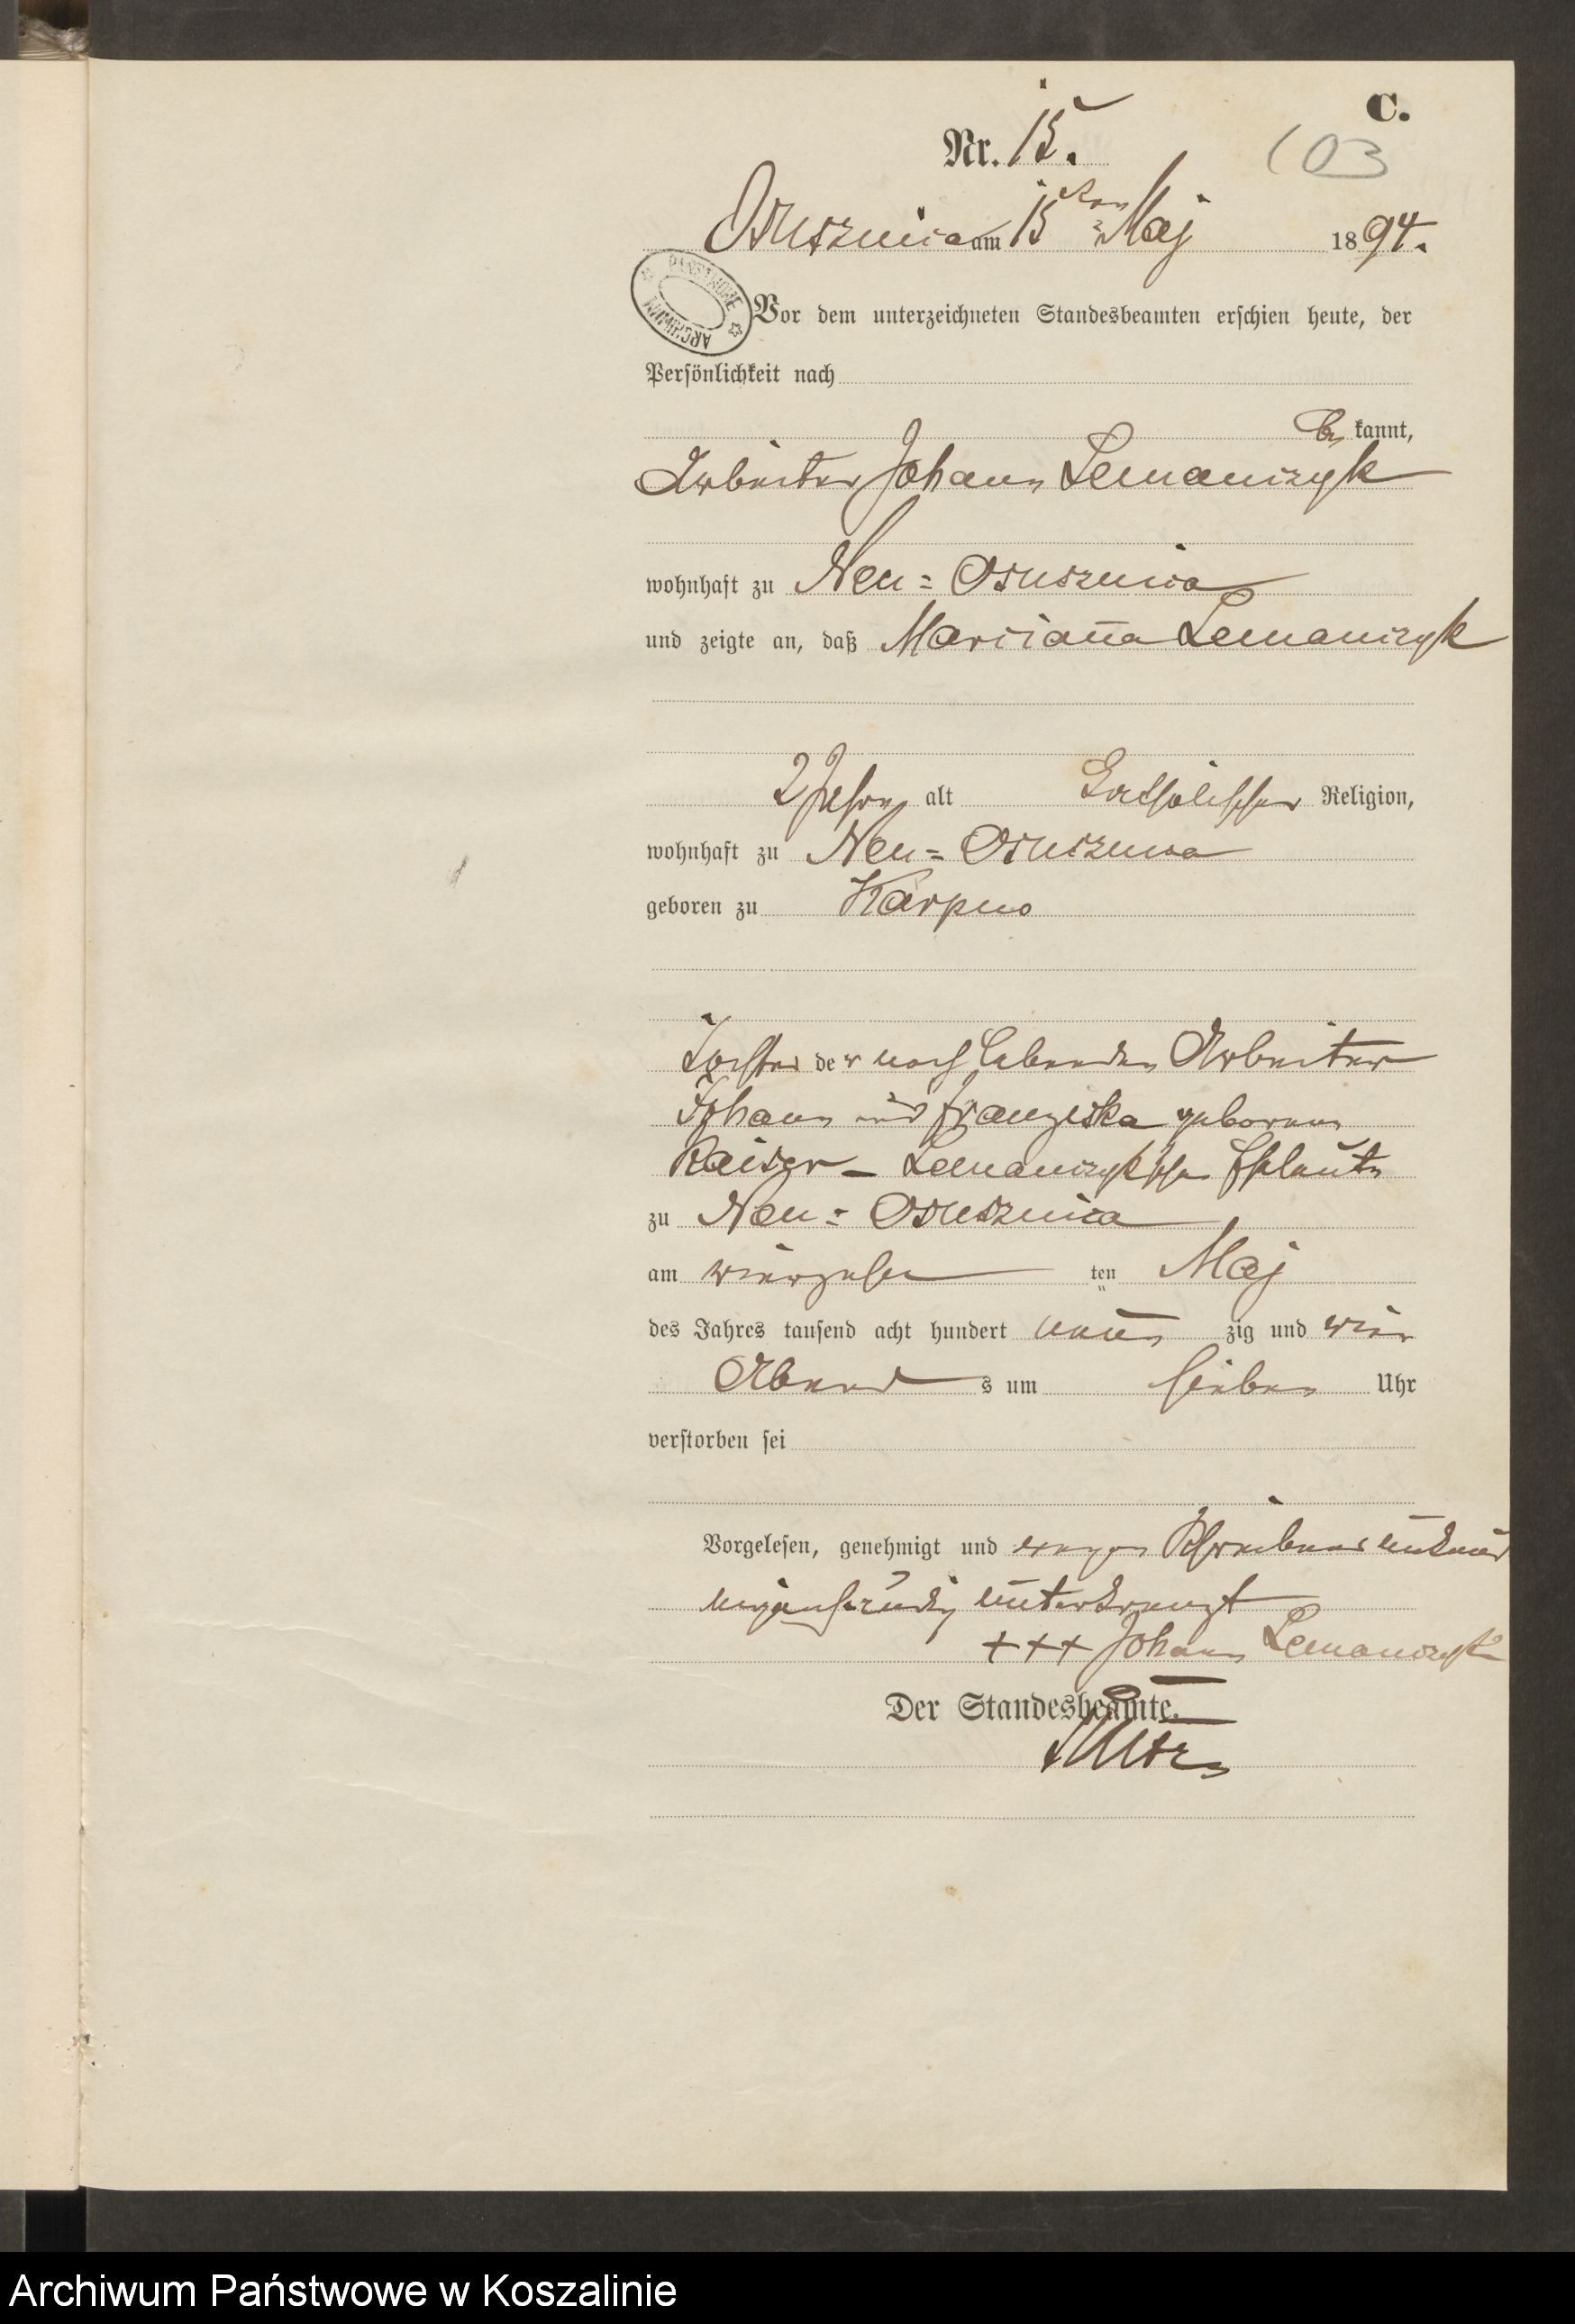 C.
Nr. 15.
103
Osusznica am 15ten Maj 1894.
PAŃSTWOWE ARCHIWUM
Vor dem unterzeichneten Standesbeamten erschien heute, der
Persönlichkeit nach
be kannt,
Arbeiter Johann Lemanczyk
wohnhaft zu Neu=Osusznica
und zeigte an, daß Marcianna Lemanczyk
2 Jahre alt katholischer Religion,
wohnhaft zu Neu=Osusznica
geboren zu Karpno
Tochter der noch lebenden Arbeiter
Johann und Franziska geborene
Kaiser - Lemanczyk'schen Eheleute
zu Neu=Osusznica
am vierzehn ten Maj
des Jahres tausend acht hundert neun zig und vier
Abend s um sieben Uhr
verstorben sei
Vorgelesen, genehmigt und wegen Schreibensunkunde
unterkreuzt
+++ Johann Lemanczyk
Der Standesbeamte.
Archiwum Państwowe w Koszalinie